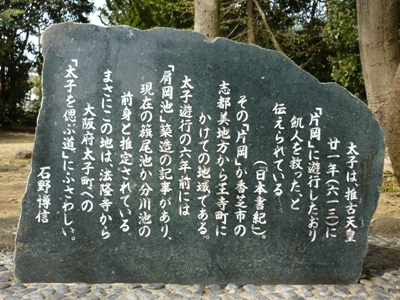 太子は推古天皇
廿一年(六一三)に
「片岡」に遊行したおり
飢人を救った、と
伝えられている
(日本書紀)。
その、「片岡」が香芝市の
志都美地方から王寺町に
かけての地域である。
太子遊行の六年前には
「肩岡池」築造の記事があり、
現在の旗尾池か分川池の
前身と推定されている。
まさにこの地は、法隆寺から
大阪府太子町への
「太子を偲ぶ道」にふさわしい。
石野博信